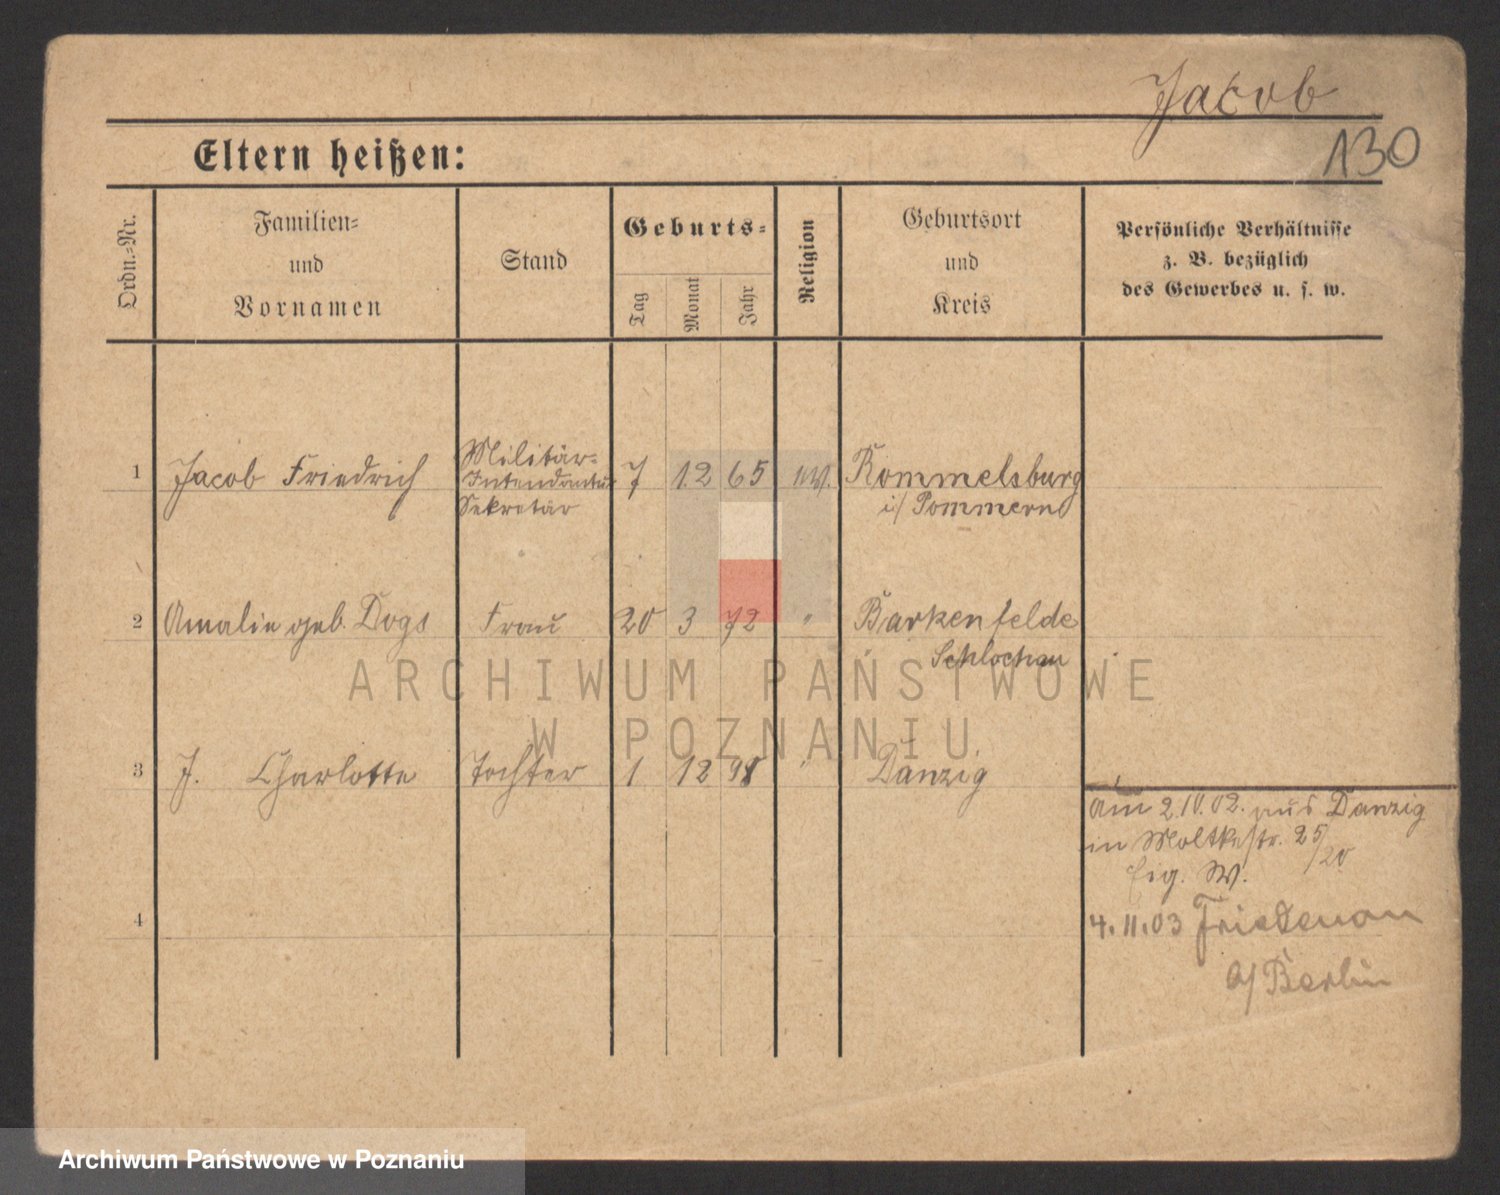 Jacob
130
Eltern heißen:
Ordn.-Nr.
Familien-
und
Vornamen
Stand
Geburts-
Tag
Monat
Jahr
Religion
Geburtsort
und
Kreis
Persönliche Verhältnisse
z. B. bezüglich
des Gewerbes u. s. w.
1 Jacob Friedrich
Militär-
Intendantur
Sekretär
7 12 65
Rommelsburg
i/ Pommern
2 Amalie geb. Dogs Frau 20 3 72 " Barkenfelde
Schlochau
3 J. Charlotte Tochter 1 12 98 " Danzig
am 2.10.02. aus Danzig
in Moltkestr. 25/20
Eig. W.
4
4.11.03 Friedenau
b/ Berlin
ARCHIWUM PAŃSTWOWE
W POZNANIU
Archiwum Państwowe w Poznaniu